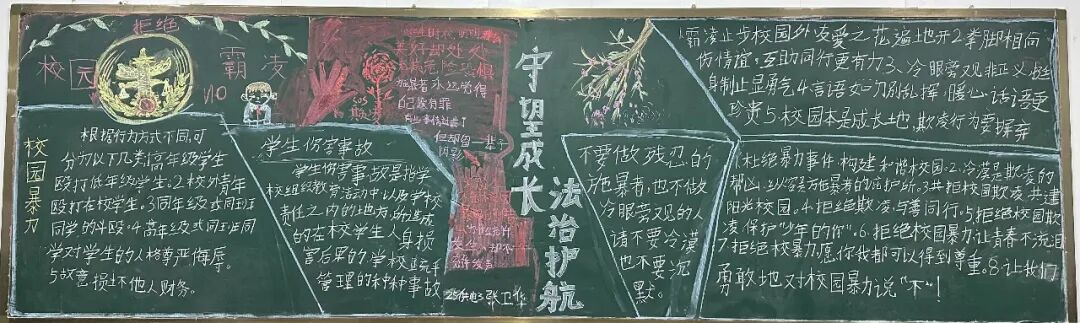 拒绝
校园
霸凌
NO
校园暴力
根据行为方式不同,可
分为以下几类:1高年级学生
殴打低年级学生。2校外青年
殴打在校学生。3同年级或同班
同学的斗殴。4高年级或同班同
学对学生的人格尊严侮辱。
5故意损坏他人财务。
学生伤害事故
学生伤害事故是指学
校组织教育活动中以及学校
责任之内的地方,的造成
的在校学生人身损
害后果的学校或
管理的种种事故
SOS
美好却处处
施暴者永远觉得
自己没有罪
但却留一辈子
阴影
守望成长
法治护航
张卫华
不要做残忍的
施暴者,也不做
冷眼旁观的人
请不要冷漠
也不要沉
默。
霸凌止步校园外友爱之花遍地开2.拳脚相向
伤情谊,互助同行更有力3、冷眼旁观非正义,挺
身制止显勇气4.言语如刀别乱挥,暖心话语更
珍贵5、校园本是成长地,欺凌行为要摒弃
杜绝暴力事件,构建和谐校园。2.冷漠是欺凌的
帮凶,纵容是施暴者的庇护所。3.共拒校园欺凌,共建
阳光校园。4.拒绝欺凌,与善同行。5拒绝校园欺
凌保护"少年的你"。6.拒绝校园暴力,让青春不流泪
7拒绝校暴力愿你我都可以得到尊重。8.让我们
勇敢地对校园暴力说"不"!